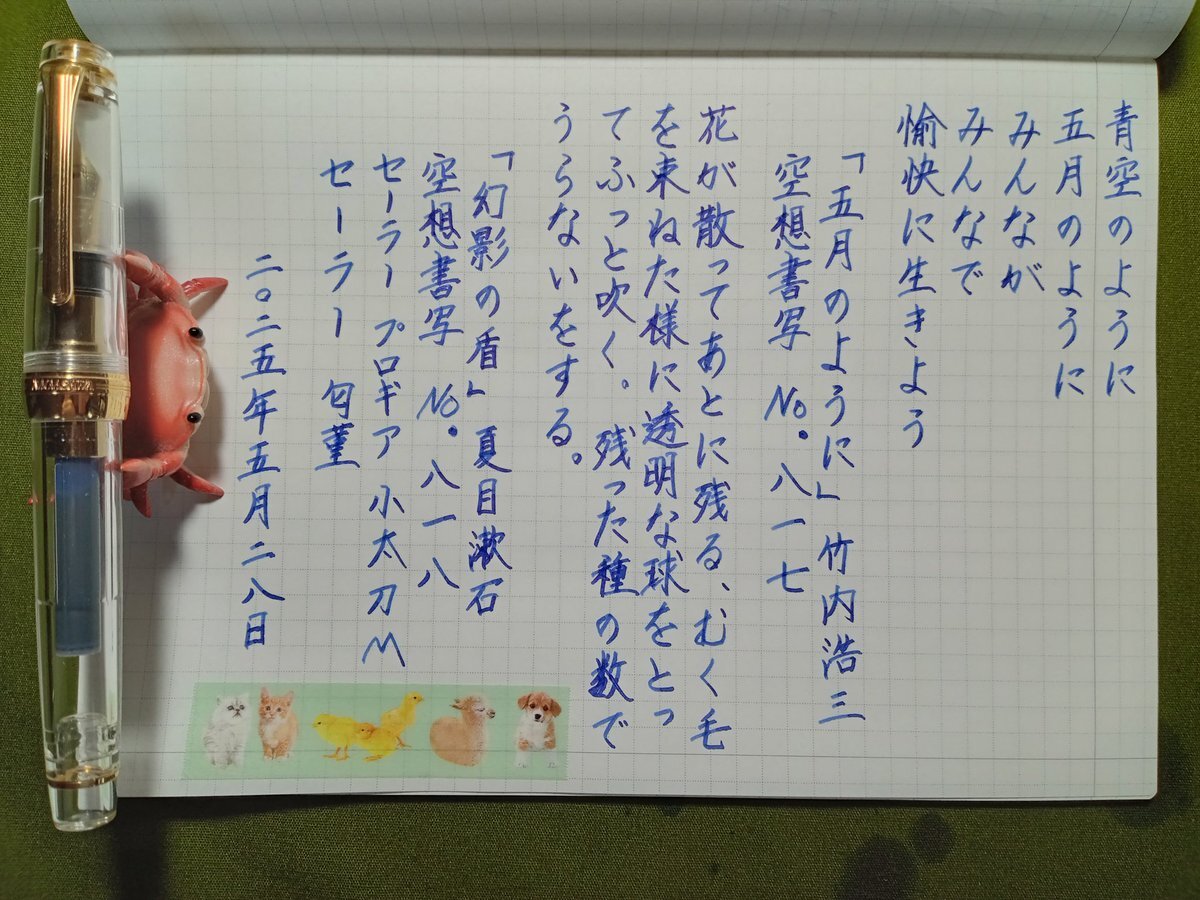 青空のように
五月のように
みんなが
みんなで
愉快に生きよう
「五月のように」竹内浩三
空想書写 No.八一七
花が散ってあとに残る、むく毛
を束ねた様に透明な球をとっ
てふっと吹く。残った種の数で
うらないをする。
「幻影の盾」夏目漱石
空想書写 No.八一八
セーラー プロギア 小太刀M
セーラー 匂菫
二〇二五年五月二八日